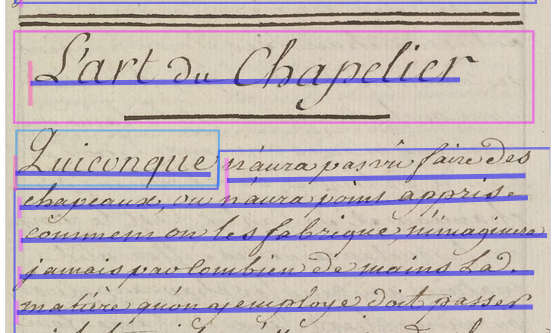 L'art du Chapelier
Quiconque n'aura pas vû faire des
chapeaux, ou n'aura point appris
comment on les fabrique, n'imaginera
jamais par combien de mains la
matière qu'on y employe doit passer